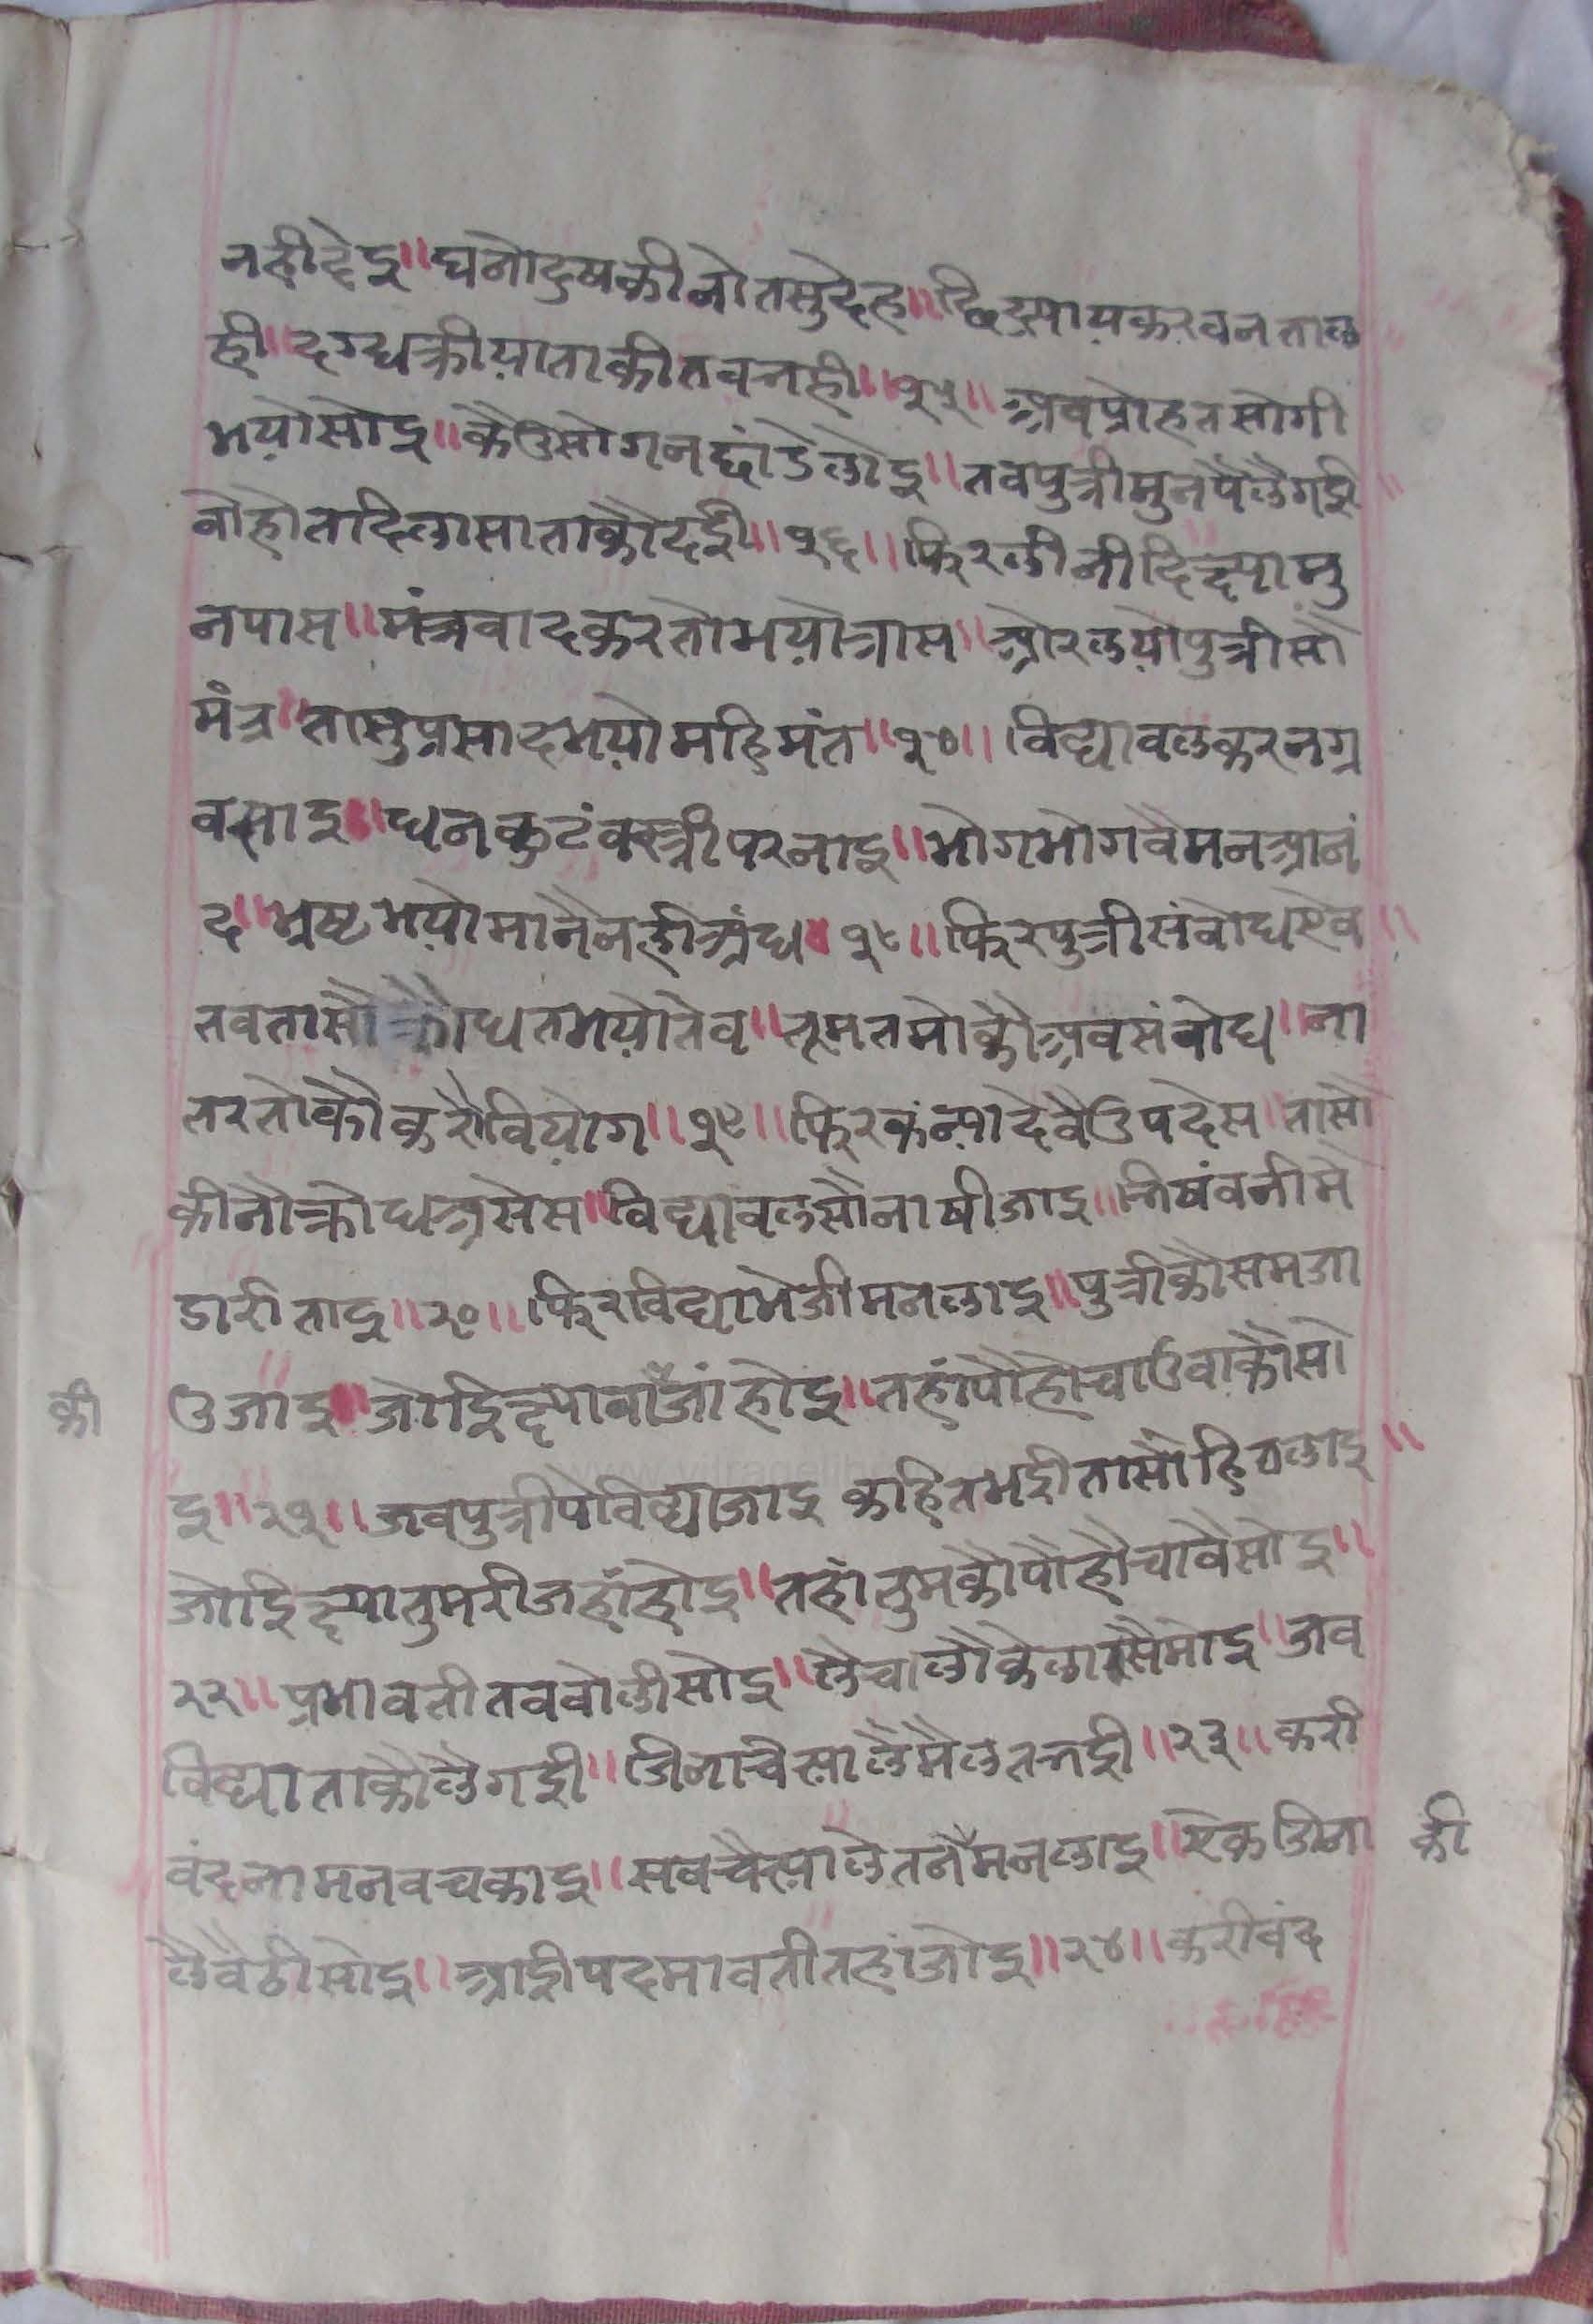 नही देइ॥ घनो दुष कीनो तसु देह॥ द्विज आय कर वन ताल
ही॥ दग्ध क्रीया ता की तव नही॥१५॥ अव प्रोहत सोगी
भयो सोइ॥ कैउ सोग न छांडे लोइ॥ तव पुत्री मुन पै लै गई॥
वोहोत दिलासा ता कौ दई॥१६॥ फिर लीनी दिक्ष्या मु
न पास॥ मंत्र वाद कर तो भयो त्रास॥ और लयो पुत्री सौ
मंत्र॥ तासु प्रसाद भयो महिमंत॥१७॥ विद्या वल कर नग्र
वसाइ॥ धन कुटंव स्त्री परनाइ॥ भोग भोगवै मन आनं
द॥ भ्रष्ट भयो मानै नही अंध॥१८॥ फिर पुत्री संवोध एव॥
तव ता सौ क्रोधत भयो तेव॥ तू मत मो कौ अव संवोध॥ ना
तर तो कौ करौ वियोग॥१९॥ फिर कंन्या देवै उपदेस॥ ता सो
कीनो क्रोध असेस॥ विद्या वल सौ नाषी जाइ॥ निषं वनी मे
डारी ताइ॥२०॥ फिर विद्या भेजी मन लाइ॥ पुत्री कौ समजा
उ जाइ॥ जो इिक्ष्या वाँ जां होइ॥ तहां पौहोचाउ वा कौ सो
इ॥२१॥ जव पुत्री पे विद्या जाइ कहित भई ता सो हित लाइ॥
जो इिक्ष्या तुमरी जहां होइ॥ तहां तुम कौ पौहौचावै सोइ॥
२२॥ प्रभावती तव वोली सोइ॥ लै चालौ केलासै मोइ॥ जव
विद्या ता कौ लै गई॥ जिना चैत्यालै मैलत नई॥२३॥ करी
वंदना मन वच काइ॥ सव चैत्याले तनै मन लाइ॥ एक जिना
लै वैठी सोइ॥ आई पदमावती तहां जोइ॥२४॥ करी वंद
की
की